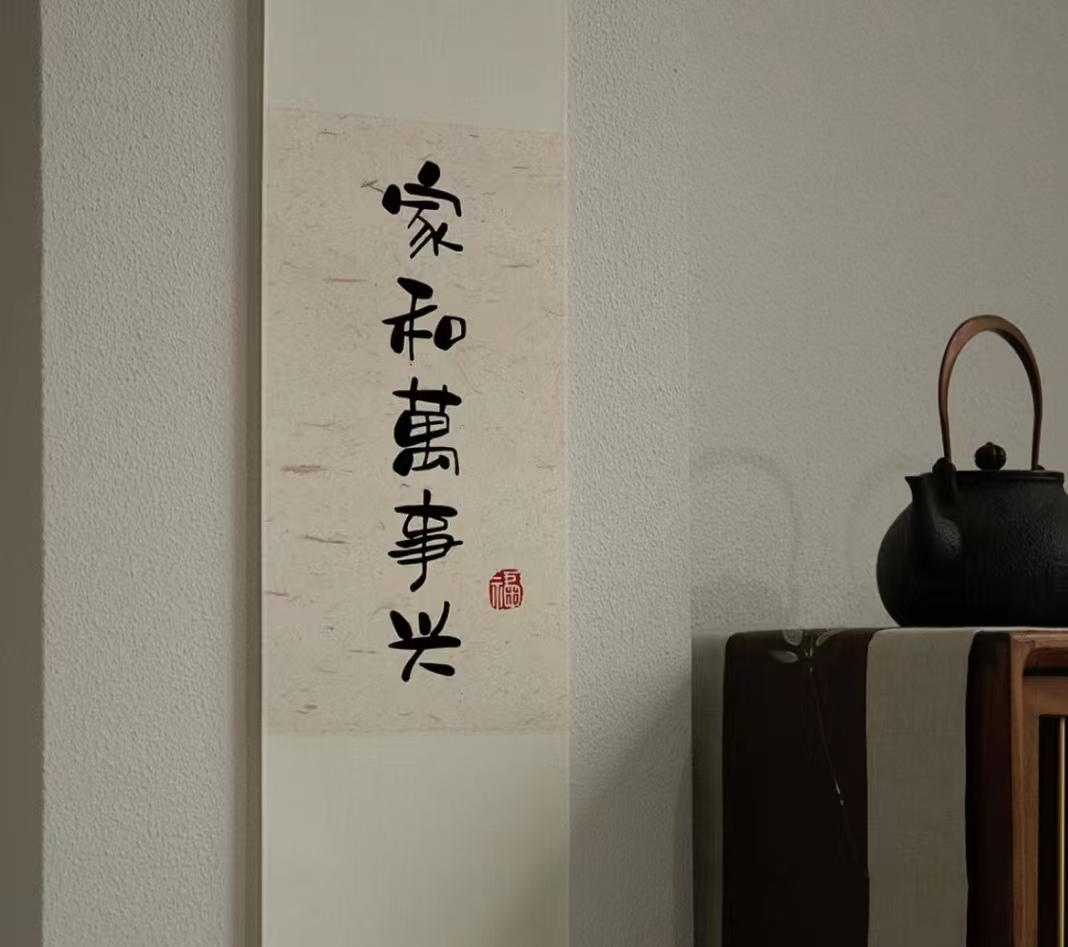 家和萬事兴
福